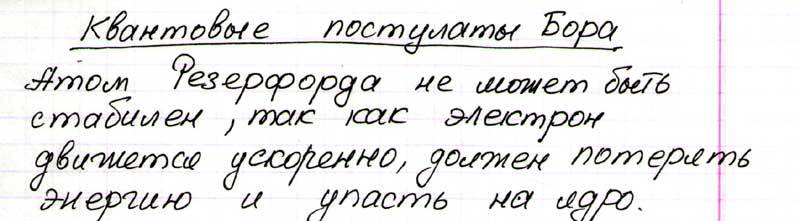 Квантовые постулаты Бора
Атом Резерфорда не может быть
стабилен, так как электрон
движется ускоренно, должен потерять
энергию и упасть на ядро.